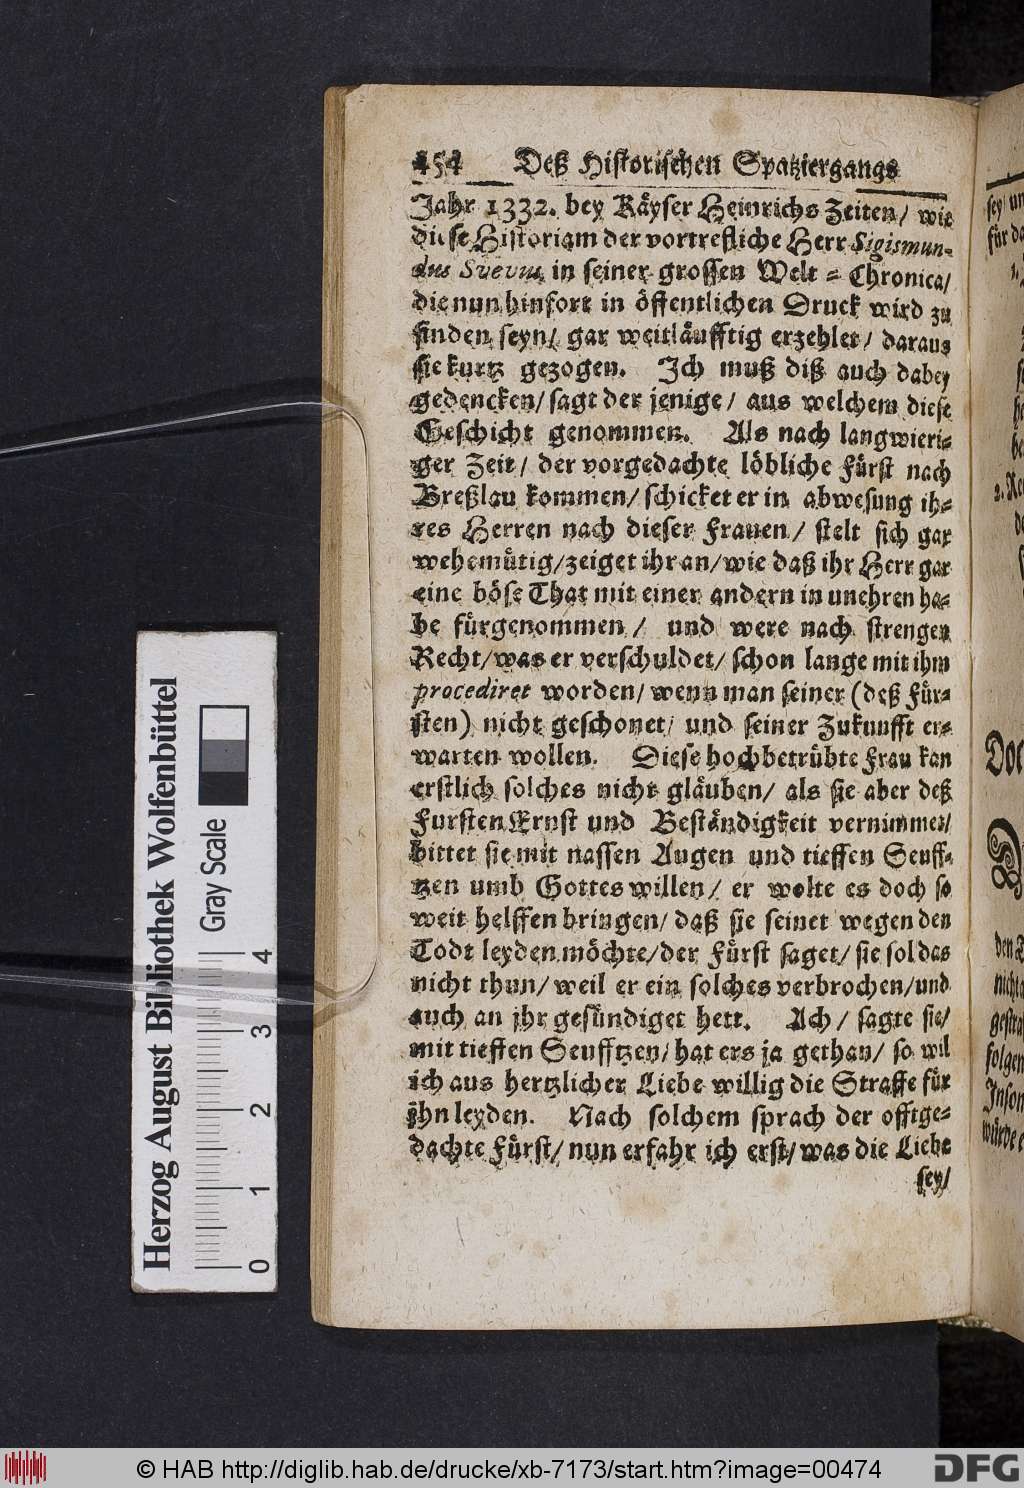 454 Deß Historischen Spatziergangs
Jahr 1332. bey Käyser Heinrichs Zeiten/ wie
diese Historiam der vortrefliche Herr Sigismun-
dus Suevus in seiner grossen Welt = Chronica/
die nun hinfort in öffentlichen Druck wird zu
finden seyn/ gar weitläufftig erzehlet/ daraus
sie kurtz gezogen. Ich muß diß auch dabey
gedencken/ sagt der jenige/ aus welchem diese
Geschicht genommen. Als nach langwieri-
ger Zeit/ der vorgedachte löbliche Fürst nach
Breßlau kommen/ schicket er in abwesung ih-
res Herren nach dieser Frauen/ stelt sich gar
wehemütig/ zeiget ihr an/ wie daß ihr Herr gar
eine böse That mit einer andern in unehren ha-
be fürgenommen/ und were nach strengen
Recht/ was er verschuldet/ schon lange mit ihm
procediret worden/ wenn man seiner (deß Für-
sten) nicht geschonet/ und seiner Zukunfft er-
warten wollen. Diese hochbetrübte Frau kan
erstlich solches nicht gläuben/ als sie aber deß
Fursten Ernst und Beständigkeit vernimmet/
bittet sie mit nassen Augen und tieffen Seuff-
tzen umb Gottes willen/ er wolte es doch so
weit helffen bringen/ daß sie seinet wegen den
Todt leyden möchte/ der Fürst saget/ sie sol das
nicht thun/ weil er ein solches verbrochen/ und
auch an jhr gesündiget hett. Ach/ sagte sie/
mit tieffen Seufftzen/ hat ers ja gethan/ so wil
ich aus hertzlicher Liebe willig die Straffe für
jhn leyden. Nach solchem sprach der offtge-
dachte Fürst/ nun erfahr ich erst/ was die Liebe
sey/
sey/ un
für da
1.
2. Re
Doc
den
nicht
gestra
folgen
Inson
würde
Herzog August Bibliothek Wolfenbüttel
Gray Scale
0 1 2 3 4
© HAB http://diglib.hab.de/drucke/xb-7173/start.htm?image=00474
DFG